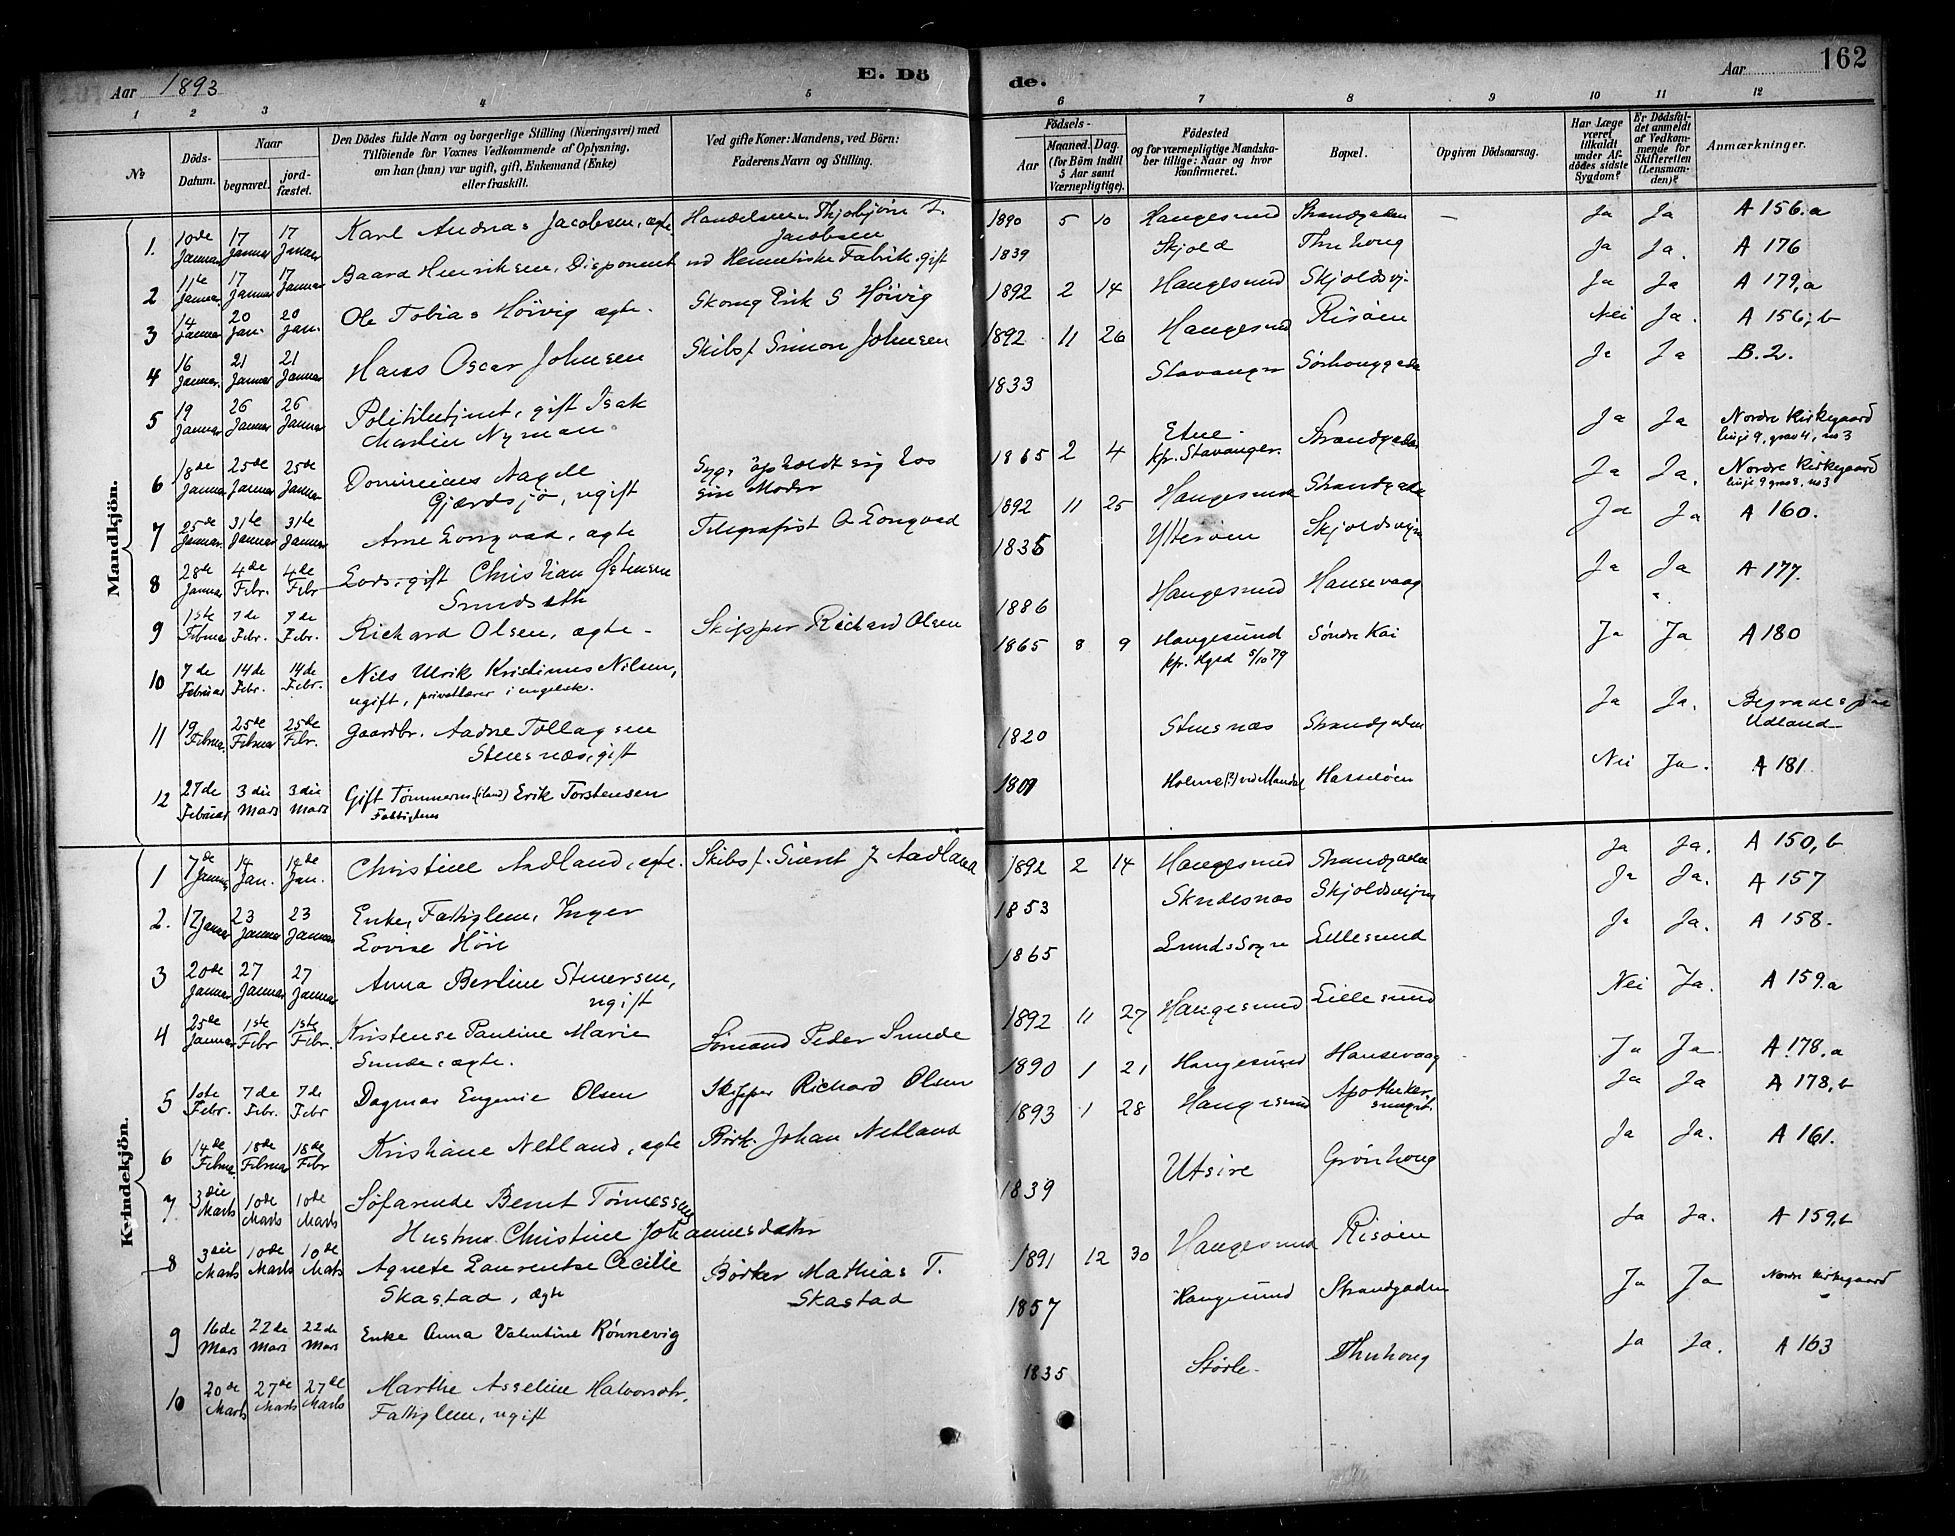 Aar 1893
E. Dö
de.
Aar
162
1 2 3 4 5 6 7 8 9 10 11 12
№
Döds-
Datum.
Naar
begravet.
jord-
fæstet.
Den Dödes fulde Navn og borgerlige Stilling (Næringsvei) med
Tilföiende for Voxnes Vedkommende af Oplysning,
om han (hun) var ugift, gift, Enkemand (Enke)
eller fraskilt.
Ved gifte Koner: Mandens, ved Börn:
Faderens Navn og Stilling.
Födsels-
Aar
Maaned. Dag.
(for Börn indtil
5 Aar samt
Værnepligtige).
Födested
og for værnepligtige Mandska-
ber tillige: Naar og hvor
konfirmeret.
Bopæl.
Opgiven Dödsaarsag.
Har Læge
været
tilkaldt
under Af-
dödes sidste
Sygdom?
Er Dödsfal-
det anmeldt
af Vedkom-
mende for
Skifteretten
(Lensman-
den)?
Anmærkninger.
Mandkjön.
1. 10de Januar 17 Januar 17 Januar Karl Andreas Jacobsen, ægte Handelsm. Thjobjörn J. Jacobsen 1890 5 10 Haugesund Strandgaden – Ja Ja A 156.a
2 11te Januar 17 Januar 17 Januar Baard Henriksen, Disponent ved Hermetiske Fabrik. gift 1839 Skjold Thuhoug Ja Ja. A 176
3 14 Januar 20 Jan. 20 Jan. Ole Tobias Höivig ægte. Skomg Erik S Höivig 1892 2 14 Haugesund Skjoldsvj. Ja Ja A 179,a
4 16 Januar. 21 Januar 21 Januar Hans Oscar Johnsen Skibsf. Simon Johnsen 1892 11 26 Haugesund Risöen Nei Ja. A 156,b
5 19 Januar 26 Januar 26 Januar Politibetjent, gift Isak
Martin Nyman. 1833 Stavanger Sörhouggade Ja Ja B.2.
6 18de Januar 25de Januar 25de Januar Dominicus Nagel
Gjerdsjö, ugift Syg, opholdt sig hos
sin Moder 1865 2 4 Etne
kfr. Stavanger. Strandgaden Ja Ja Nordre Kirkegaard
linje 9, grav 4, no 3
7 25de Januar 31te Januar 31te Januar Arne Lonqvad, ægte Telegrafist O Lonqvad 1892 11 25 Haugesund Strandgade Ja Ja. Nordre Kirkegaard
linje 9 grav 8, no 3
8 28de Januar 4de Febr. 4de Febr Lods, gift Christian Östensen
Sundseth 1835 Ytteröen Skjoldsvejen Ja Ja A 160.
9 1ste Februar 7de Febr. 7de Febr. Richard Olsen, ægte - Skipper Richard Olsen 1886 Haugesund Hansevaag Ja Ja A 177.
10 7de Februar 14de Febr. 14de Febr. Nils Ulrik Kristinus Nilsen,
ugift, privatlærer i engelsk. 1865 8 9 Haugesund
kfr. Hgsd 5/10 79 Söndre Kai Ja Ja A 180
11 19 Februar. 25de Februar 25de Febr. Gaardbr. Aadne Tollagsen
Stensnæs, gift 1820 Stensnæs Strandgaden Ja Ja. Begravedes paa
Udland
12 27de Februar 3die Mars 3die Mars Gift Tömmerm. (iland) Erik Torstensen
Fattiglem 1801 Holme (?) ved Mandal Hasselöen Nei Ja. A 181.
Kvindekjön.
1 7de Januar 14 Jan. 14de Jan. Christine Aadland, ægte. Skibsf. Sivert J Aadland 1892 2 14 Haugesund Strandgaden Ja Ja. A 150,b
2. 17 Januar 23 Januar 23 Januar Enke, Fattiglem, Inger
Lovise Höie 1853 Skudesnæs Skjoldsvejen Ja Ja. A 157
3 20de Januar 27 Januar 27 Januar Anna Bertine Stenersen,
ugift 1865 Lunds Sogn Lillesund Ja Ja. A 158.
4 25de Januar 1ste Febr 1ste Febr. Kristense Pauline Marie
Sunde, ægte. Sömand Peder Sunde 1892 11 27 Haugesund Lillesund Nei Ja. A 159.a
5 1ste Febr. 7de Febr. 7de Febr Dagmar Eugenie Olsen Skipper Richard Olsen 1890 1 21 Haugesund Hansevaag Ja Ja A 178,a
6 14de Februar. 18de Februar 18de Febr Kristiane Netland, ægte Börk. Johan Netland 1893 1 28 Haugesund Apotheker-
smuget. Ja Ja A 178,b
7 3die Marts 10de Marts 10de Marts Söfarende Bernt Tönnessens
Hustru Christine Johannesdatter 1839 Utsire Grönhoug Ja Ja. A 161.
8 3die Marts 10de Marts 10de Marts Agnete Laurentse Cecilie
Skastad, ægte Börker Mathias T.
Skastad 1891 12 30 Haugesund Risöen Ja Ja. A 159,b
9 16de Mars 22de Mars 22de Mars Enke Anna Valentine Rönnevig 1857 Haugesund Strandgaden Ja Ja Nordre Kirkegaard
10 20de Marts 27de Marts 27de Marts Marthe Asseline Halvorsdtr,
Fattiglem, ugift 1835 Störle Thuhoug Ja Ja. A 163